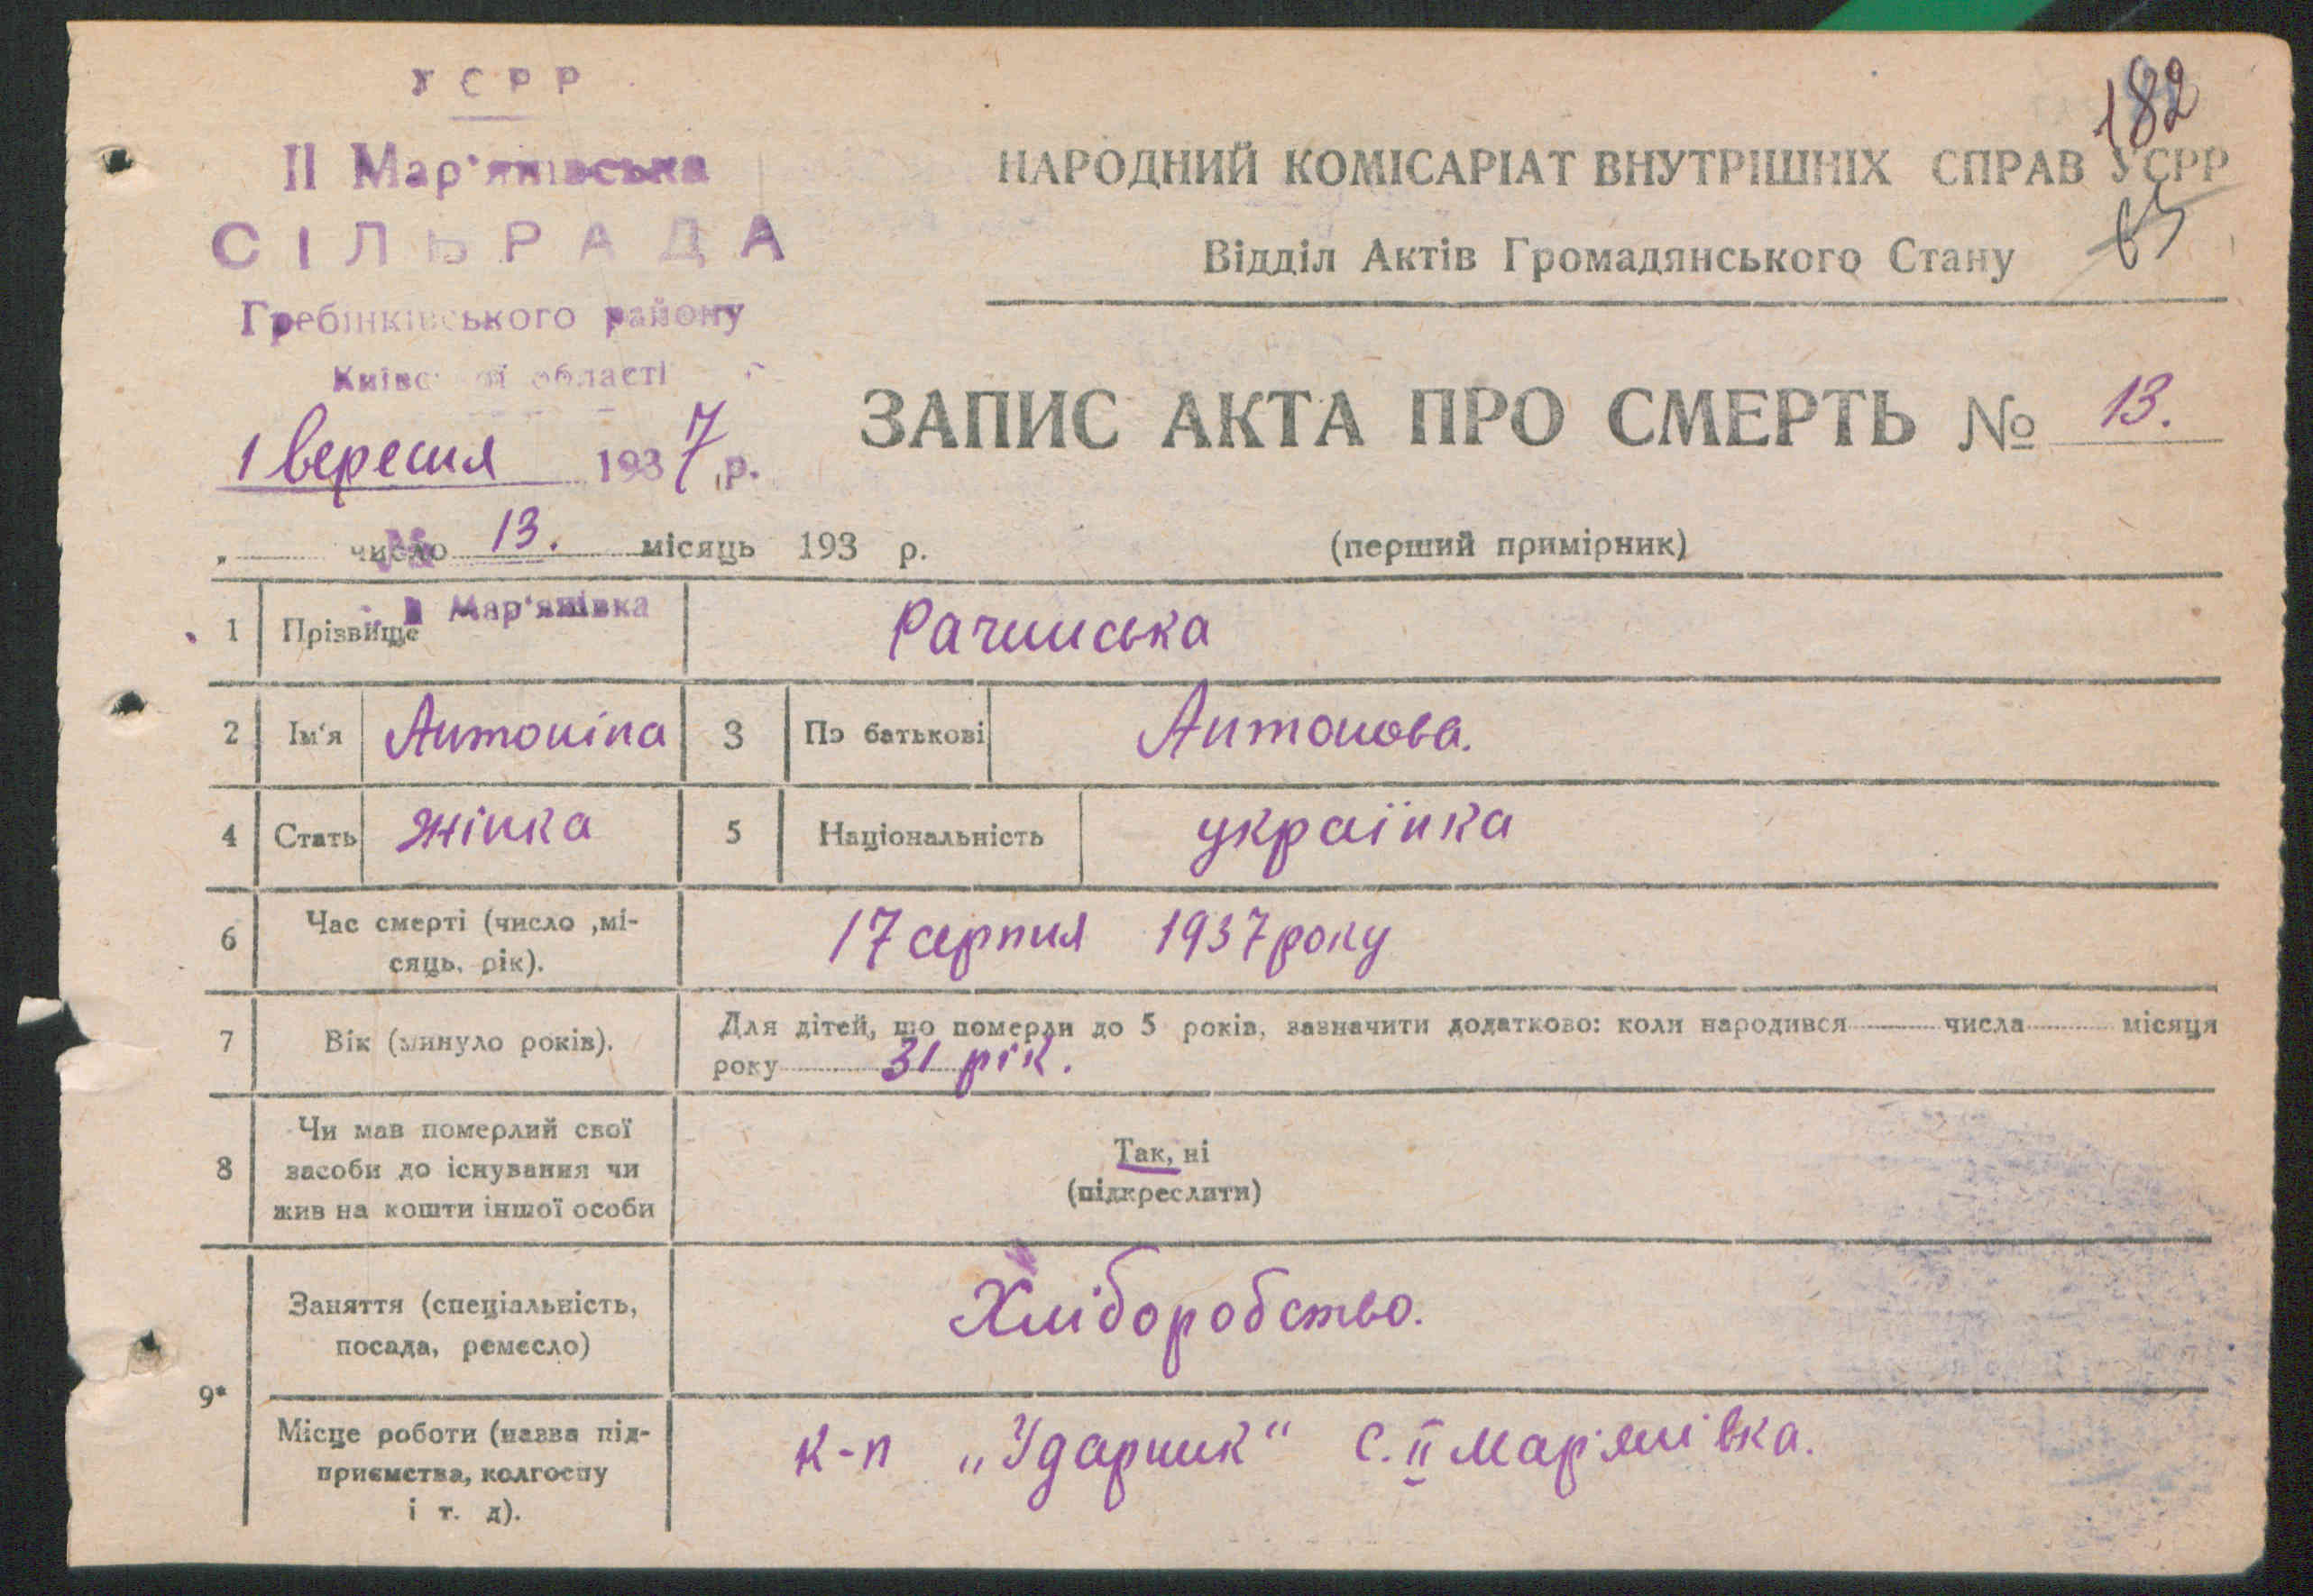 УСРР
182
II Мар'янівська
НАРОДНИЙ КОМІСАРІАТ ВНУТРІШНІХ СПРАВ УСРР
65
СІЛЬРАДА
Відділ Актів Громадянського Стану
Гребінківського району
Київської області
ЗАПИС АКТА ПРО СМЕРТЬ № 13.
1 вересня 1937 р.
„ число № 13. місяць 193 р.
(перший примірник)
с. II Мар'янівка
1 Прізвище Рачинська
2 Ім'я Антоніна 3 По батькові Антонова.
4 Стать жінка 5 Національність українка
6 Час смерті (число ,мі-
сяць, рік). 17 серпня 1937 року
7 Вік (минуло років). Для дітей, що померли до 5 років, зазначити додатково: коли народився числа місяця
року 31 рік.
8 Чи мав померлий свої
засоби до існування чи
жив на кошти іншої особи
Так, ні
(підкреслити)
9* Заняття (спеціальність,
посада, ремесло) Хліборобство.
Місце роботи (назва під-
приємства, колгоспу
і т. д). к-п „Ударник" с. II Мар'янівка.